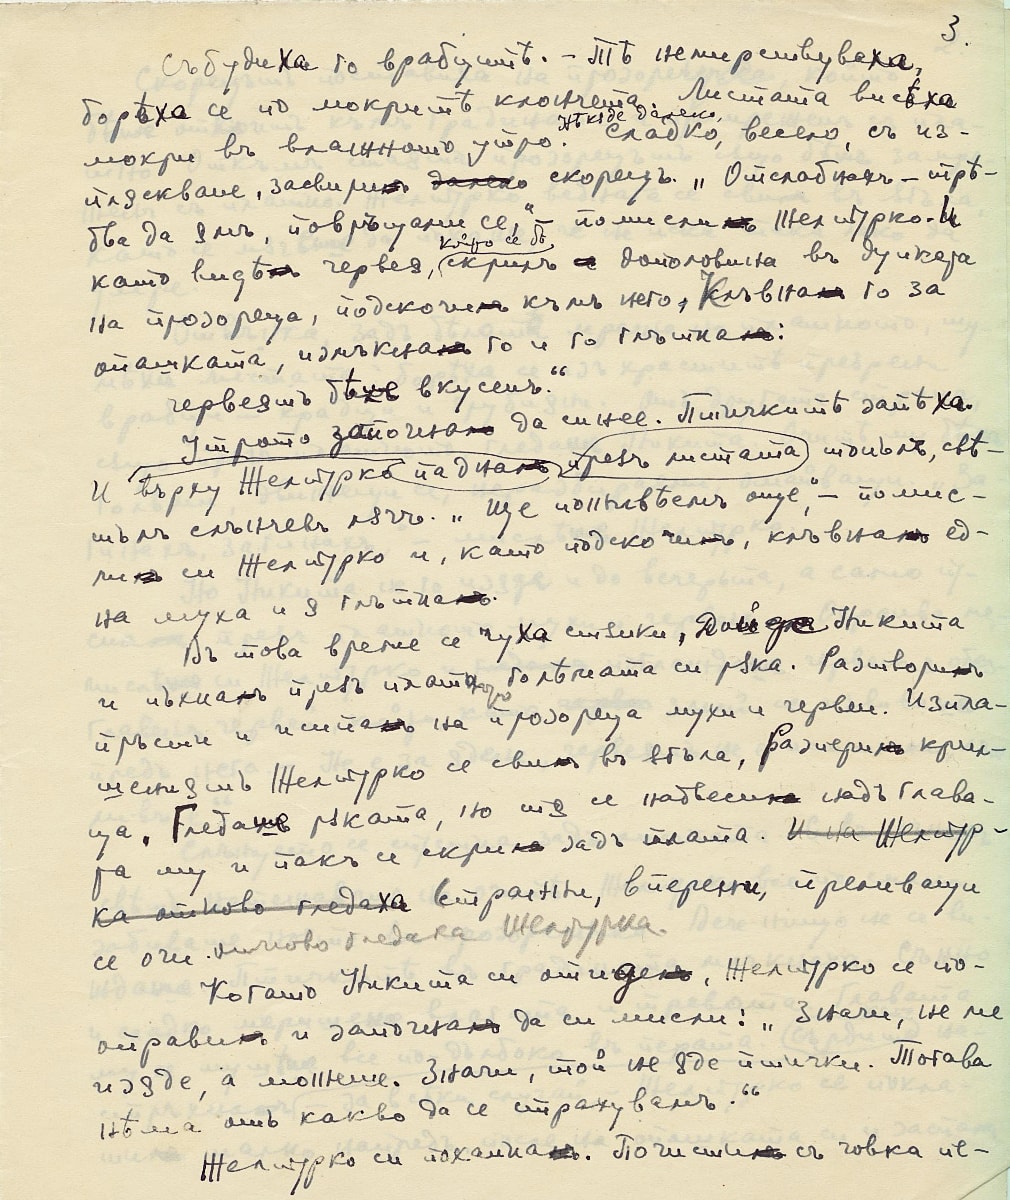 3.
Събудиха го врабците. – Тѣ немирствуваха,
борѣха се по мокритѣ клончета. Листата висѣха
нѣкѫде далеко,
мокри въ влажното утро. Сладко, весело, съ из-
пляскване, засвири далеко скорецъ. „Отслабнахъ – трѣ-
бва да ямъ, повръщами се,“ – помисли Желтурко. И
който се бѣ
като видѣ червея, скрилъ се дополовина въ дупката
на прозореца, подскочи къмъ него, клъвна го за
опашката, измъкна го и го глътна:
червеятъ бѣше вкусенъ.“
Утрото започна да синее. Птичкитѣ запѣха.
И върху Желтурко падна презъ листата топълъ, свѣ-
тълъ слънчевъ лѫчъ. „Ще поживѣемъ още,“ – помис-
ли си Желтурко и, като подскочи, клъвна ед-
на муха и я глътна.
Въ това време се чуха стѫпки, дойде Никита
и пъхна презъ платното голѣмата си рѫка. Разтвори
пръсти и изсипа на прозореца мухи и червеи. Изпла-
шениятъ Желтурко се сви въ ѫгъла, разпери крил-
ца, гледаше рѫката, но тя се надвеси надъ глава-
та му и пакъ се скри задъ плата. И на Желтур-
ка отново гледаха странни, вперени, преливащи
се очи отново гледаха Желтурка.
Когато Никита си отиде, Желтурко се по-
оправи и започна да си мисли: „Значи, не ме
изяде, а можеше. Значи, той не яде птички. Тогава
нѣма отъ какво да се страхувамъ.“
Желтурко си похапна. Почисти съ човка пе-